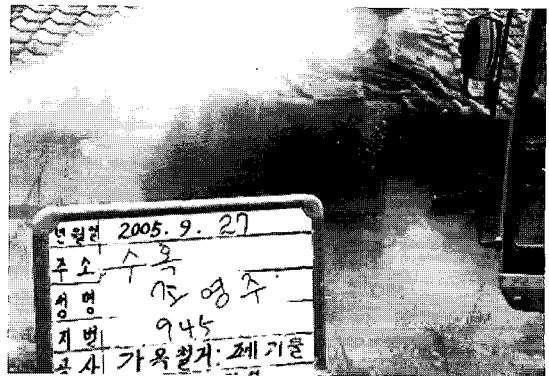 년월일 2005. 9. 27
주소 수옥
성명 영주
지번 945
공사 가옥철거: 폐기물